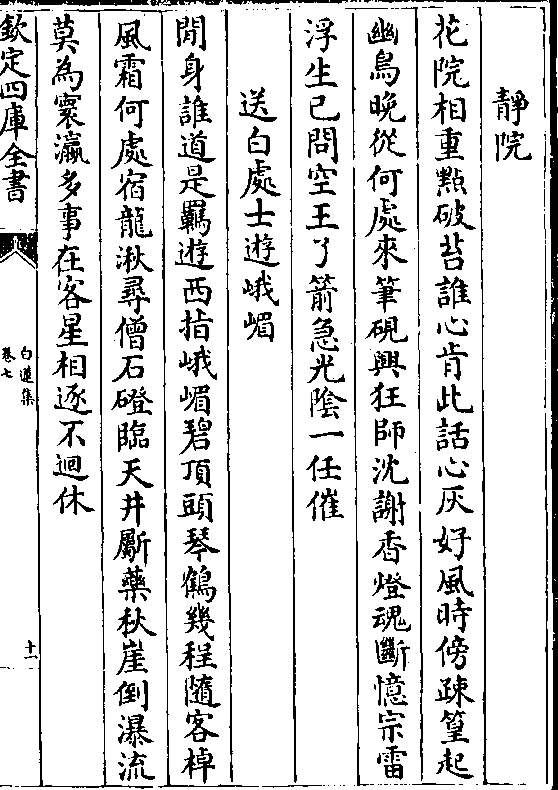 靜院
花院相重點破苔誰心肯此話心灰好風時傍疎篁起
幽鳥晚從何處來筆硯興狂師沈謝香燈魂斷憶宗雷
浮生已問空王了箭急光陰一任催
送白處士遊峨嵋
閒身誰道是羈遊西指峨嵋碧頂頭琴鶴幾程隨客棹
風霜何處宿龍湫尋僧石磴臨天井斸藥秋崖倒瀑流
莫為寰瀛多事在客星相逐不迴休
欽定四庫全書
白蓮集
卷七
十一